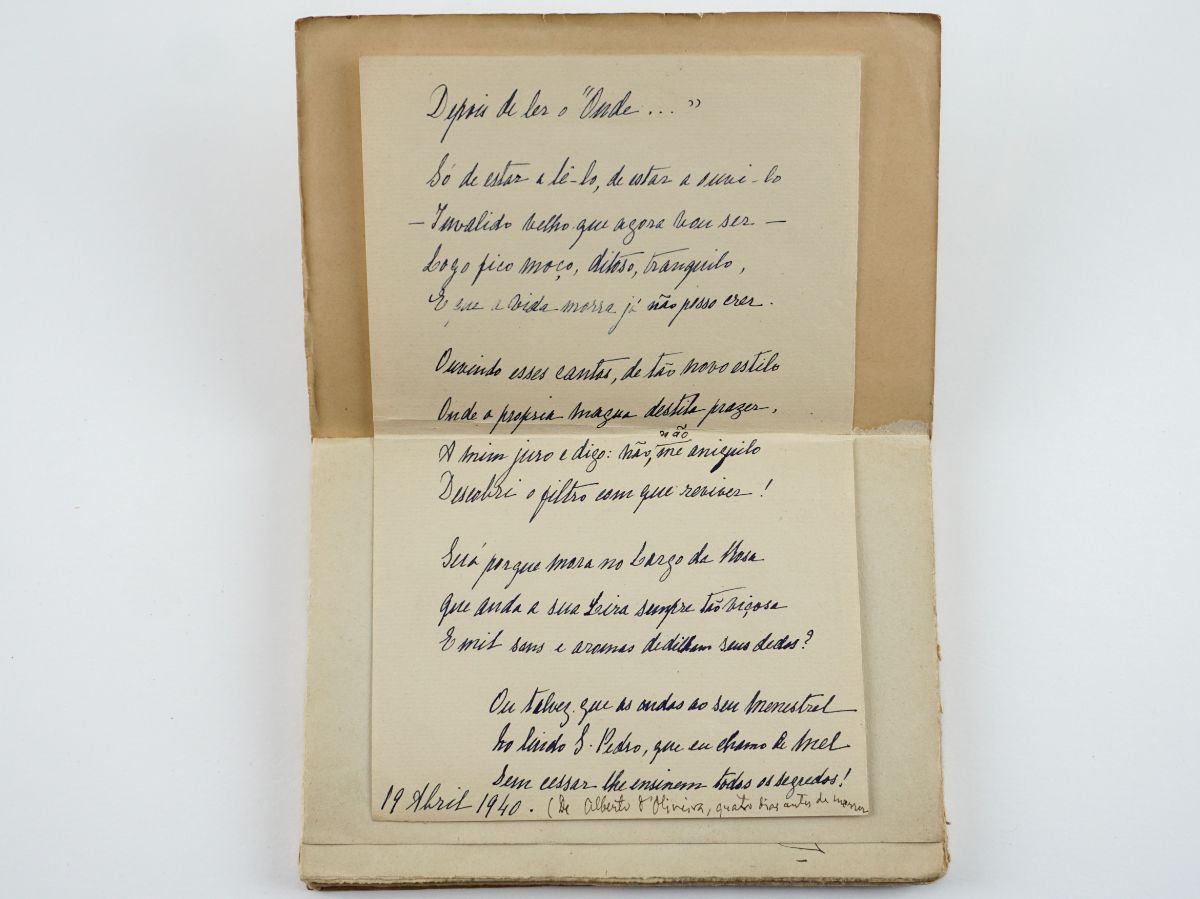 Depois de ler o "Onde..."
Só de estar a lê-lo, de estar a ouvi-lo
— Invalido velho que agora vou ser —
Logo fico moço, ditoso, tranquilo,
E que a vida morra já não posso crer.
Ouvindo esses cantos, de tão novo estilo
Onde a propria magua destila prazer,
não
A mim juro e digo: não, me aniquilo
Descobri o filtro com que reviver!
Será porque mora no Largo da Rosa
Que anda a sua Leira sempre tão viçosa
E mil sons e aromas dedilham seus dedos?
Ou talvez que as ondas ao seu Menestrel
No lindo S. Pedro, que eu chamo de Mel
Sem cessar lhe ensinem todos os segredos!
19 Abril 1940. (De Alberto d'Oliveira, quatro dias antes de morrer